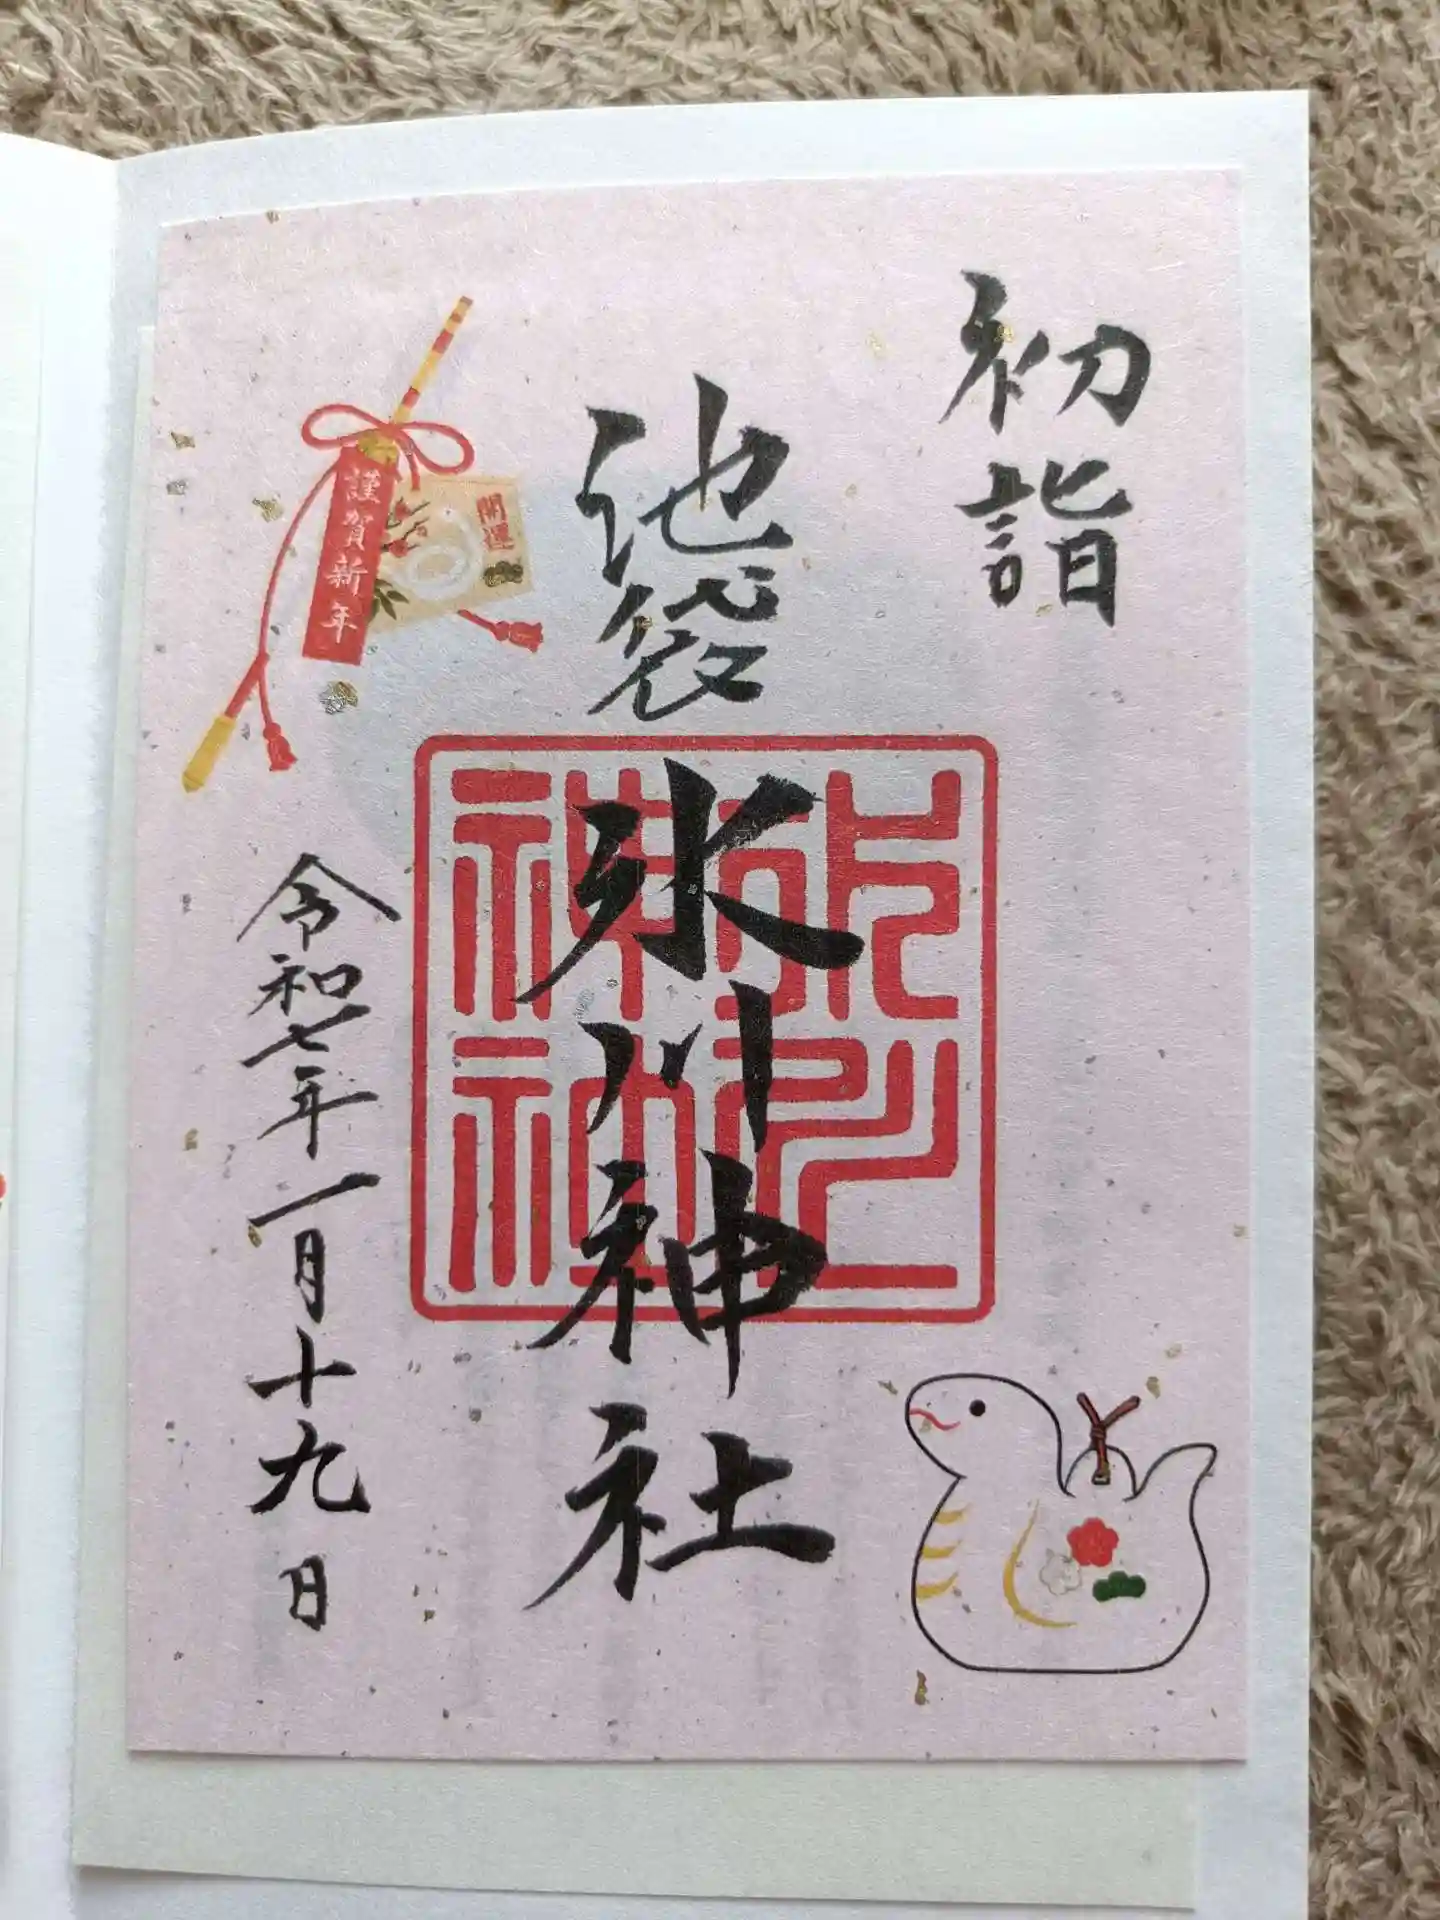 初詣
池袋
氷川神社
氷川
神社
謹賀新年
開運
令和七年一月十九日